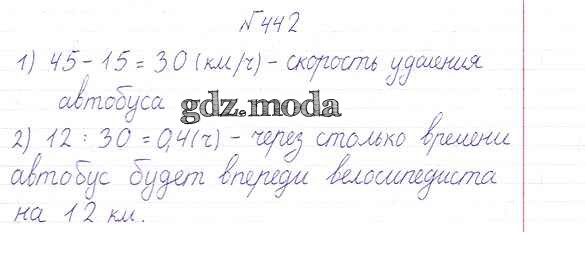 № 442
1) 45 - 15 = 30 (км/ч) - скорость удаления
автобуса
gdz.moda
2) 12 : 30 = 0,4 (ч) - через столько времени
автобус будет впереди велосипедиста
на 12 км.